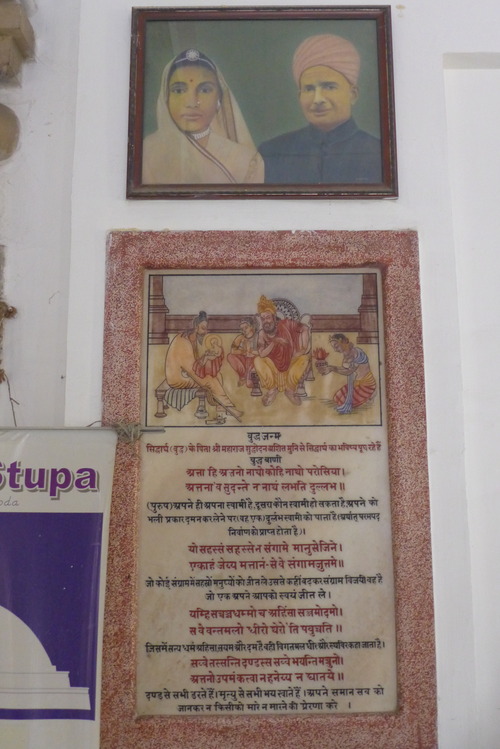 बुद्धजन्म
सिद्धार्थ (बुद्ध) के पिता श्री महाराज शुद्धोदन असित मुनि से सिद्धार्थ का भविष्य पूछ रहे हैं
बुद्ध वाणी
अत्ता हि अत्तनो नाथो कोहि नाथो परोसिया।
अत्तना'व सुदन्ते न नाथं लभति दुल्लभं॥
(पुरुष) अपने ही अपना स्वामी है, दूसरा कौन स्वामी हो सकता है, अपने को
भली प्रकार दमन कर लेने पर (वह एक) दुर्लभ स्वामी को पाता है (अर्थात्
निर्वाण को प्राप्त होता है।)।
यो सहस्सं सहस्सेन संगामे मानुसेजिने।
एकाहं जेय्य मत्तानं स वे संगामजुत्तमो॥
जो कोई संग्राम में सहस्त्रों मनुष्यों को जीत ले उससे कहीं बढ़कर संग्राम विजयी वह है
जो एक अपने आपको स्वयं जीत ले।
यम्हि सच्चञ्च धम्मो च अहिंसा सञ्ञमो दमो।
स वे वन्तमलो धीरो थेरो'ति पवुच्चति॥
जिसमें सत्य धर्म अहिंसा, संयम और दम है वही विगतमल धीर और स्थविर कहा जाता है।
सव्वे तसन्ति दण्डस्स सव्वे भायन्ति मच्चुनो।
अत्तनो उपमं कत्वा न हनेय्य न घातये॥
दण्ड से सभी डरते हैं। मृत्यु से सभी भय खाते हैं। अपने समान सब को
जानकर न किसी को मारे न मारने की प्रेरणा करे।
Stupa
oda